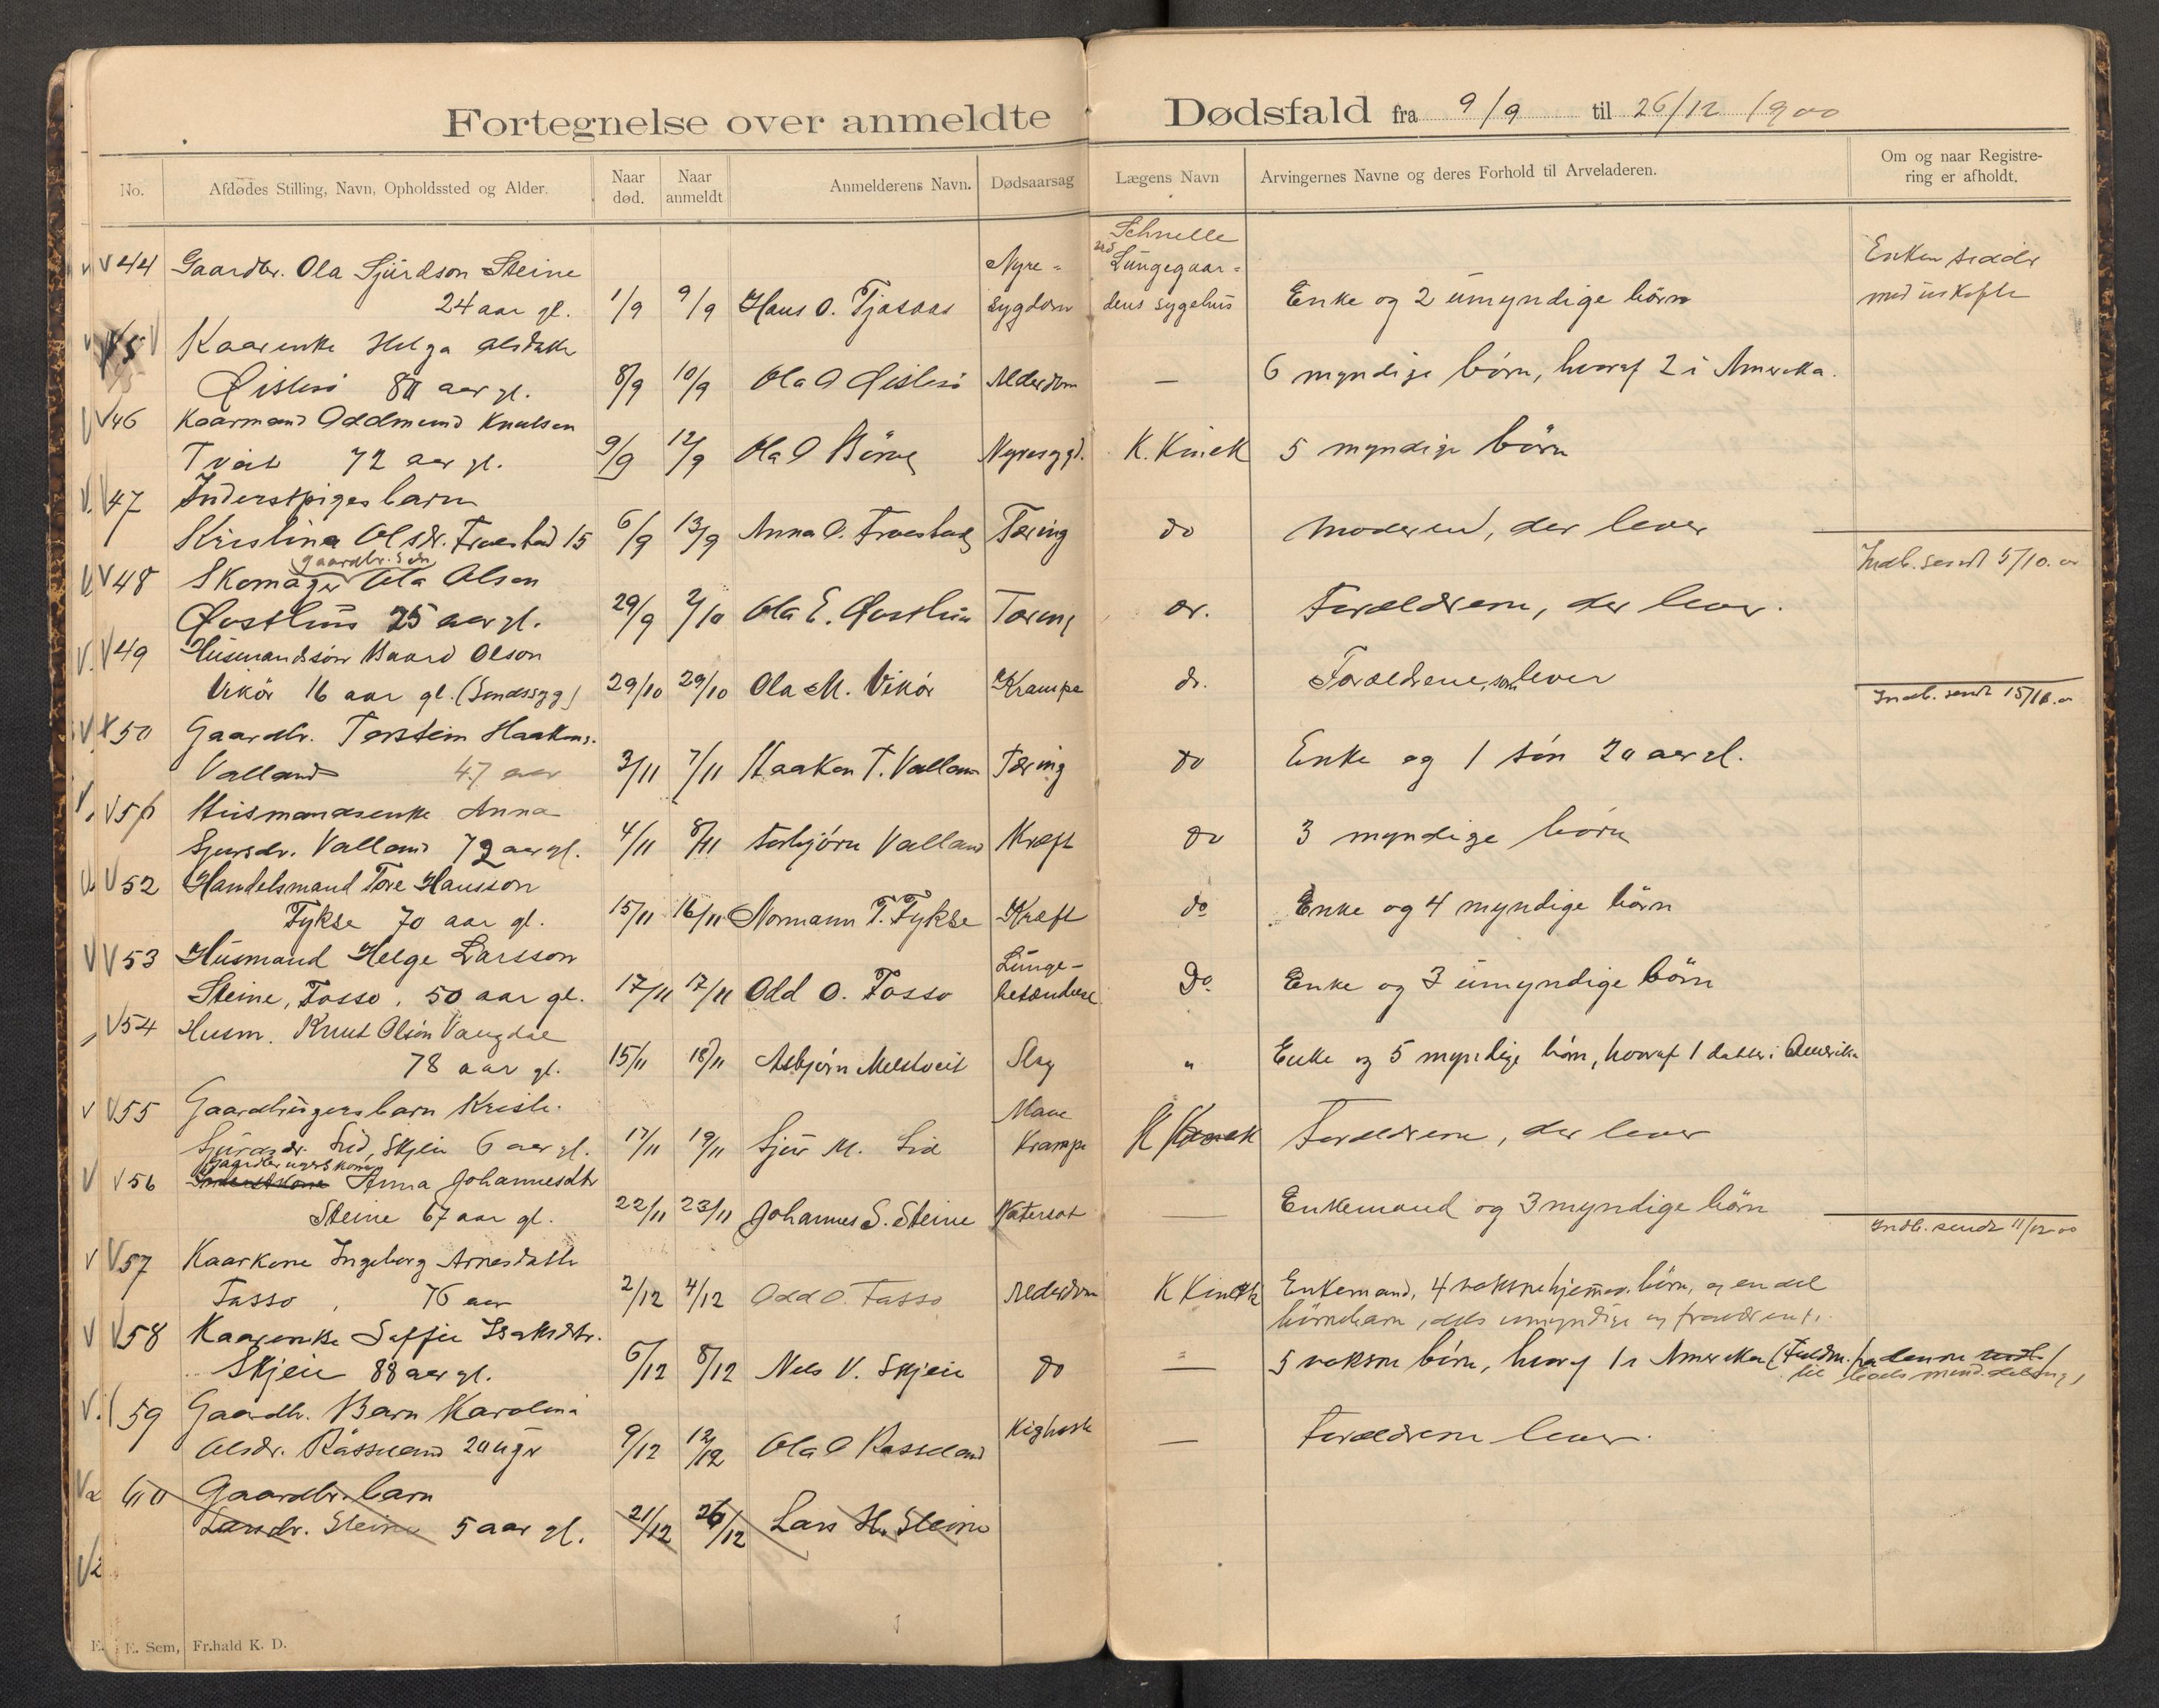 Fortegnelse over anmeldte Dødsfald fra 9/9 til 26/12 1900
No.
Afdødes Stilling, Navn, Opholdssted og Alder.
Naar død.
Naar anmeldt
Anmelderens Navn.
Dødsaarsag
Lægens Navn
Arvingernes Navne og deres Forhold til Arveladeren.
Om og naar Registrering er afholdt.
44 Gaardbr. Ola Sjurdson Steine
24 aar gl. 1/9 9/9 Hans O. Tjosaas
Nyre-
sygdom
Schnelle
ved Lungegaar-
dens sygehus
Enke og 2 umyndige börn
Enken sidder
med uskifte
45 Kaarenke Helga Olsdatter
Øistesö 80 aar gl. 8/9 10/9 Ola O Øistesö Alderdom — 6 myndige börn, hvoraf 2 i Amerika.
46 Kaarmand Oddmund Knutsen
Tveit 72 aar gl. 9/9 12/9 Ola O Börve Nyresygd. K. Kinck 5 myndige börn
47 Inderstpiges barn
Kristina Olsdr. Fraestad 15 6/9 13/9 Anna O. Fraestad Tæring do Moderen, der lever
gaardbr. sön
48 Skomager Ola Olsen
Øvsthus 25 aar gl. 29/9 2/10 Ola E. Øvsthus Tæring do. Forældrene, der lever.
Indb. sendt 5/10.00
49 Husmandsön Baard Olson
Vikör 16 aar gl. (Sindssyg) 29/10 29/10 Ola M. Vikör Krampe do. Forældrene, som lever
Indb. sendt 15/11.00
50 Gaardbr. Torstein Haakons.
Valland 47 aar 3/11 7/11 Haakon T. Valland Tæring do Enke og 1 sön 20 aar gl.
51 Husmandsenke Anna
Sjursdr. Valland 72 aar gl. 4/11 8/11 Torbjörn Valland Kræft do 3 myndige börn
52 Handelsmand Tore Hansson
Fykse 70 aar gl. 15/11 16/11 Normann T. Fykse Kræft do Enke og 4 myndige börn
53 Husmand Helge Larsson
Steine, Tosso. 50 aar gl. 17/11 17/11 Odd O. Tosso
Lunge-
betændelse Do Enke og 3 umyndige börn
54 Husm. Knut Olson Vangdal
78 aar gl. 15/11 18/11 Asbjørn Melstveit Slag " Enke og 5 myndige börn, hvoraf 1 datter i Amerika
55 Gaardbrugers barn Kristi.
Sjursdr. Lid, Skjeie 6 aar gl. 17/11 19/11 Sjur M. Lid
Mave
Krampe K Kinck Forældrene, der lever
Gaardbrugerskone
56 Inderstkone Anna Johannesdtr
Steine 67 aar gl. 22/11 23/11 Johannes S. Steine — Enkemand og 3 myndige börn
Indb. sendt 11/12 00
57 Kaarkone Ingeborg Arnesdatter
Tosso, 76 aar 2/12 4/12 Odd O. Tosso Alderdom K Kinck Enkemand, 4 voksne hjemmev. börn, og en del
börnebarn, dels umyndige og
58 Kaarenke Saffie Isaksdtr.
Skjeie 88 aar gl. 6/12 8/12 Nels V. Skjeie do — 5 voksne börn, hvoraf 1 i Amerika
59 Gaardb. Barn Karolina
Olsdr. Rässeland 20 uger 9/12 12/12 Ola O Rosseland Kighoste — Forældrene lever.
60 Gaardbr. barn
Larsdr. Steine 5 aar gl. 21/12 26/12 Lars H. Steine
E. Sem, Fr.hald K. D.